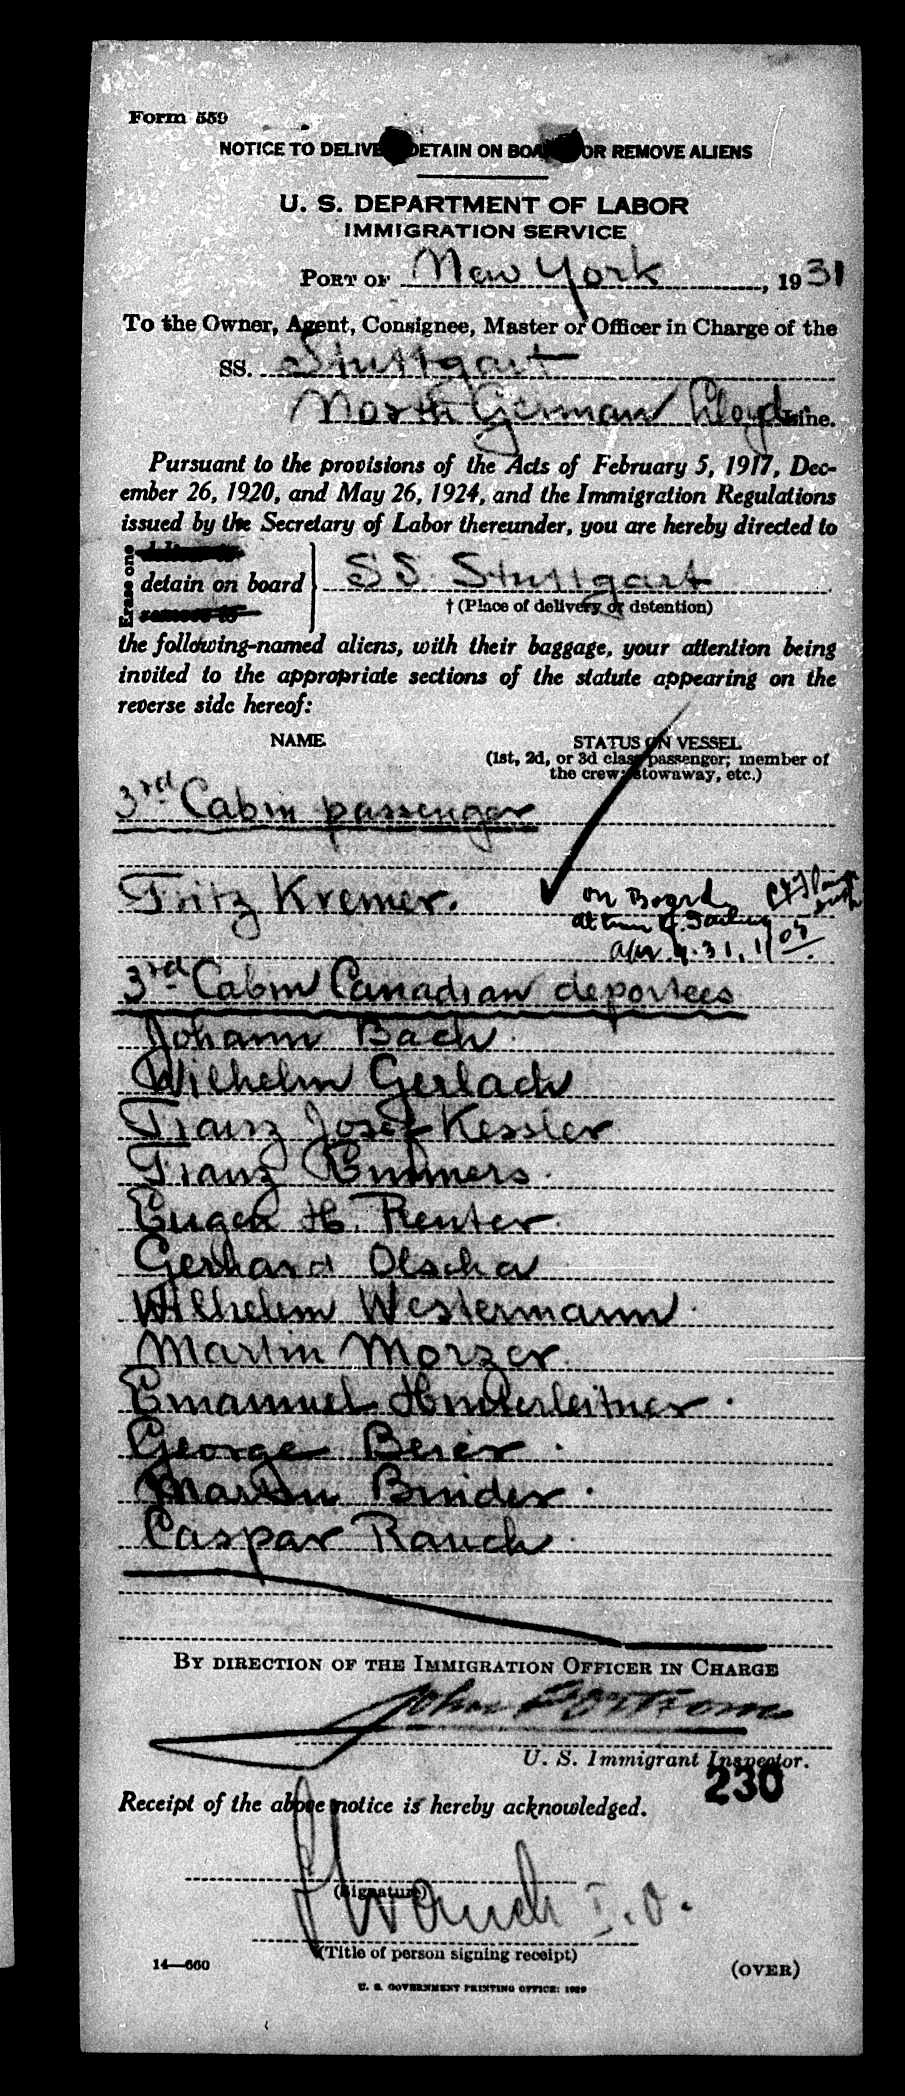 Form 559
NOTICE TO DELIVER DETAIN ON BOARD OR REMOVE ALIENS
U. S. DEPARTMENT OF LABOR
IMMIGRATION SERVICE
PORT OF New York, 1931
To the Owner, Agent, Consignee, Master or Officer in Charge of the
SS. Stuttgart
North German Lloyd Line.
Pursuant to the provisions of the Acts of February 5, 1917, Dec-
ember 26, 1920, and May 26, 1924, and the Immigration Regulations
issued by the Secretary of Labor thereunder, you are hereby directed to
Erase one
detain on board } SS. Stuttgart
remove to
† (Place of delivery or detention)
the following-named aliens, with their baggage, your attention being
invited to the appropriate sections of the statute appearing on the
reverse side hereof:
NAME STATUS ON VESSEL
(1st, 2d, or 3d class passenger; member of
the crew; stowaway, etc.)
3rd Cabin passenger
Fritz Kremer. on Board
at time of Sailing
Apr 9.31, 11
3rd Cabin Canadian deportees
Johann Bach
Wilhelm Gerlach
Franz Josef Kessler
Franz Emmers.
Eugen H. Renter.
Gerhard Olscha
Wilhelm Westermann.
Martin Morzer
Emanuel Hinderleitner.
George Beier.
Martin Binder.
Caspar Rauch.
BY DIRECTION OF THE IMMIGRATION OFFICER IN CHARGE
John
U. S. Immigrant Inspector.
230
Receipt of the above notice is hereby acknowledged.
(Signature)
I.O.
(Title of person signing receipt)
14—660 (OVER)
U. S. GOVERNMENT PRINTING OFFICE: 1929